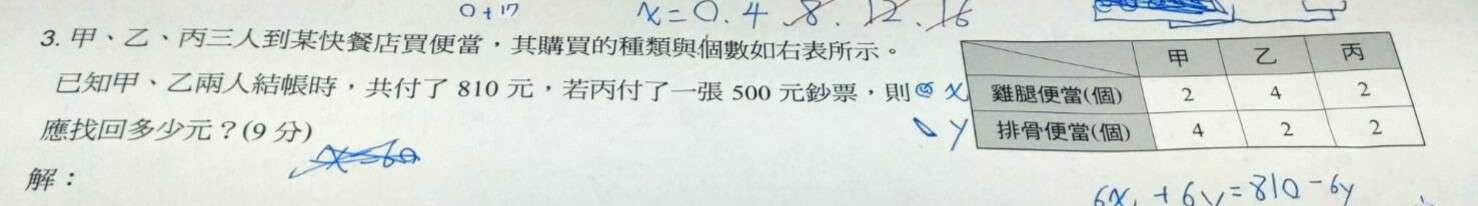 0+17
x=0.4.8.12.16
3. 甲、乙、丙三人到某快餐店買便當，其購買的種類與個數如右表所示。
已知甲、乙兩人結帳時，共付了 810 元，若丙付了一張 500 元鈔票，則
應找回多少元？(9 分)
甲 乙 丙
x 雞腿便當(個) 2 4 2
y 排骨便當(個) 4 2 2
x=60
解：
6x+6y=810-6y